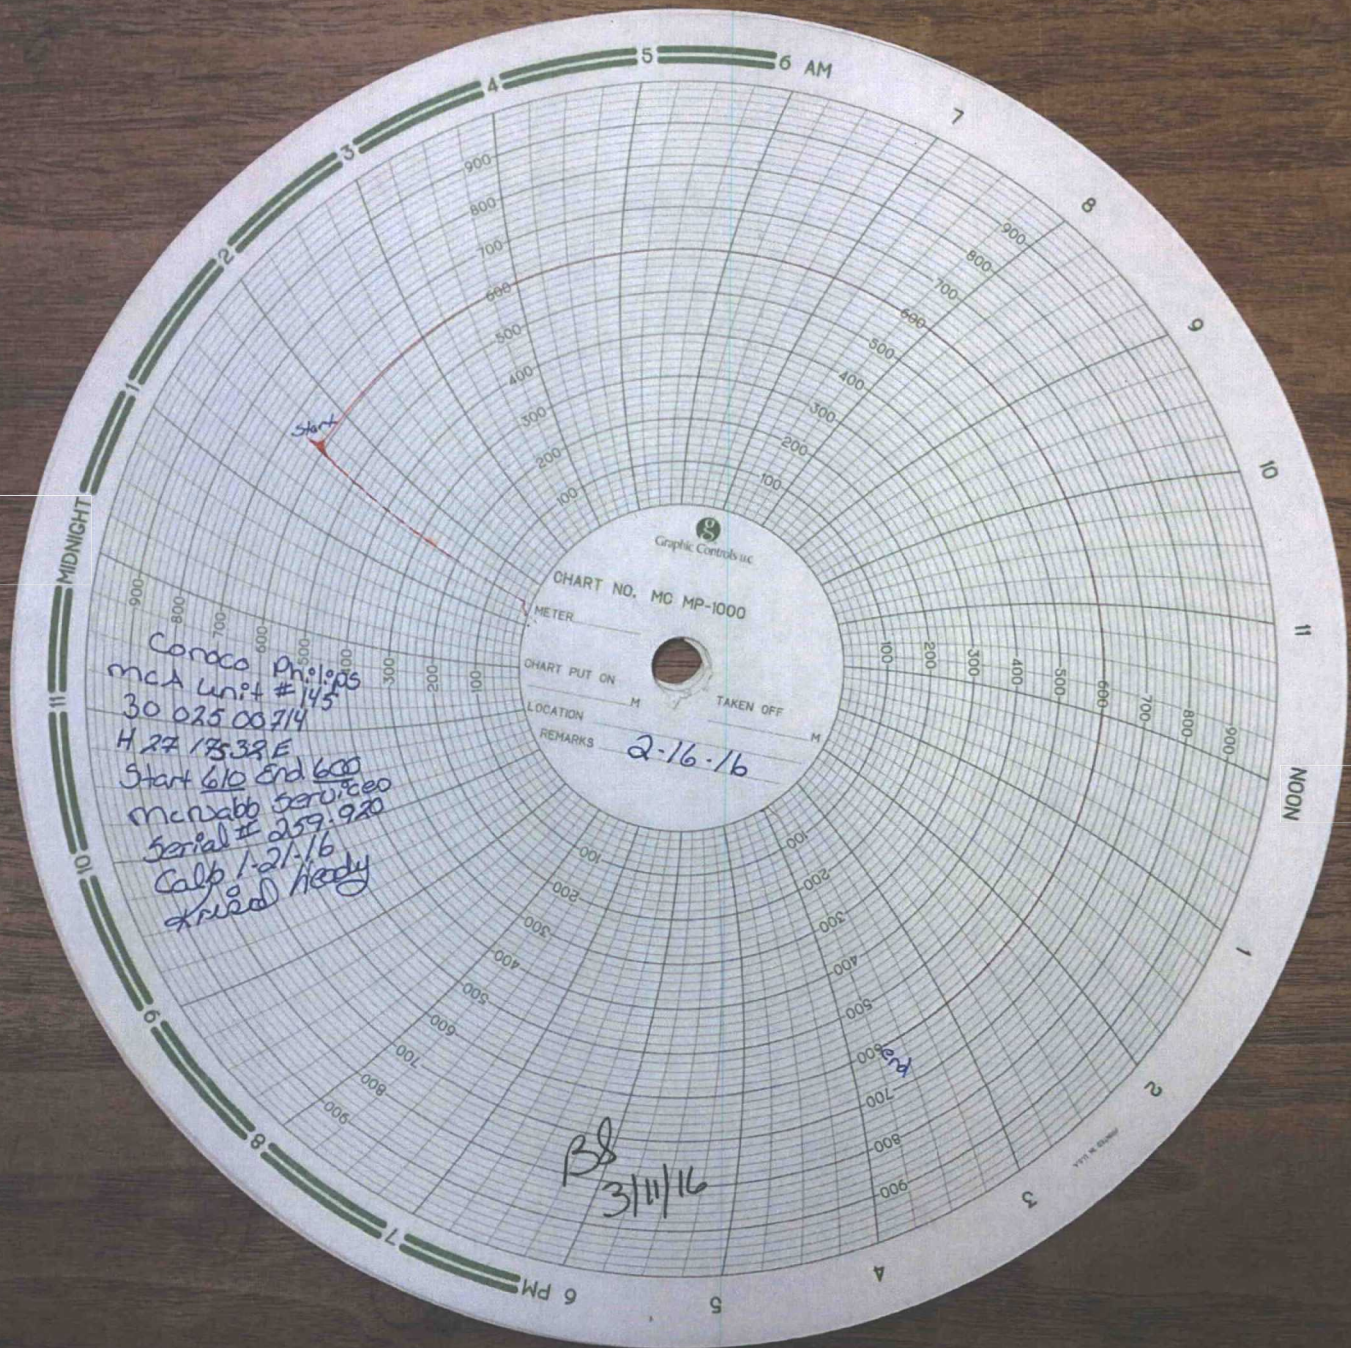 5
6 AM
7
8
9
10
11
NOON
1
2
3
4
5
6 PM
7
8
9
10
11
MIDNIGHT
1
2
3
4
900
800
700
600
500
400
300
200
100
900
800
700
600
500
400
300
200
100
100
200
300
400
500
600
700
800
900
100
200
300
400
500
600
700
800
900
100
200
300
400
500
600
700
800
900
900
800
700
600
500
400
300
200
100
Start
end
g
Graphic Controls LLC
CHART NO. MC MP-1000
METER
CHART PUT ON
M
TAKEN OFF
M
LOCATION
REMARKS 2-16-16
Conoco Philips
MCA Unit #145
30 025 00714
H 27 17S 32E
Start 610 End 600
McNabb Services
Serial # 259.920
Calb 1-21-16
BS
3/11/16